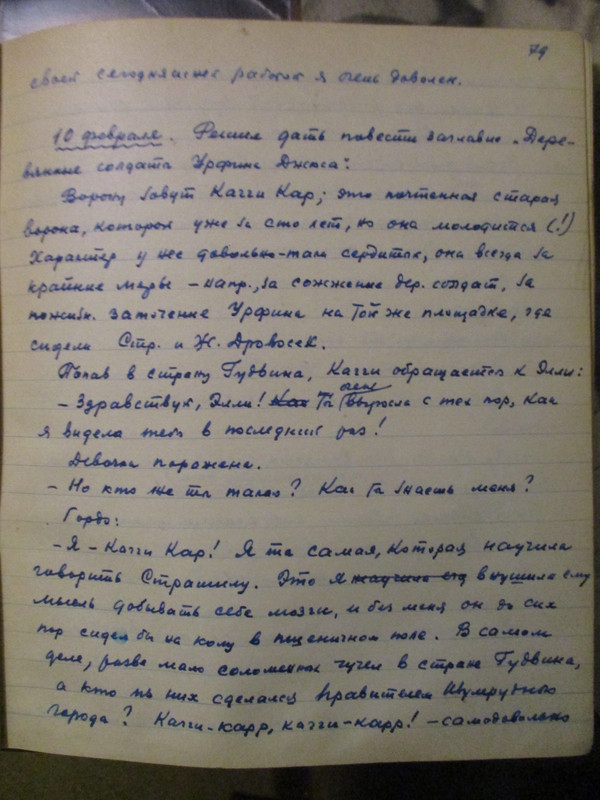 79
своей сегодняшней работой я очень доволен.
10 февраля. Решил дать повести заглавие „Дере-
вянные солдаты Урфина Джюса".
Ворону зовут Кагги Кар; это почтенная старая
ворона, которой уже за сто лет, но она молодится (!)
Характер у нее довольно-таки сердитый, она всегда за
крайние меры – напр., за сожжение дер. солдат, за
пожизн. заточение Урфина на той же площадке, где
сидели Стр. и Ж. Дровосек.
Попав в страну Гудвина, Кагги обращается к Элли:
– Здравствуй, Элли! Как Ты очень выросла с тех пор, как
я видела тебя в последний раз!
Девочка поражена.
– Но кто же ты такая? Как Ты знаешь меня?
Гордо:
– Я – Кагги Кар! Я та самая, которая научила
говорить Страшилу. Это я научила его внушила ему
мысль добывать себе мозги, и без меня он до сих
пор сидел бы на колу в пшеничном поле. В самом
деле, разве мало соломенных чучел в стране Гудвина,
а кто из них сделался правителем Изумрудного
города? Кагги-карр, кагги-карр! – самодовольно